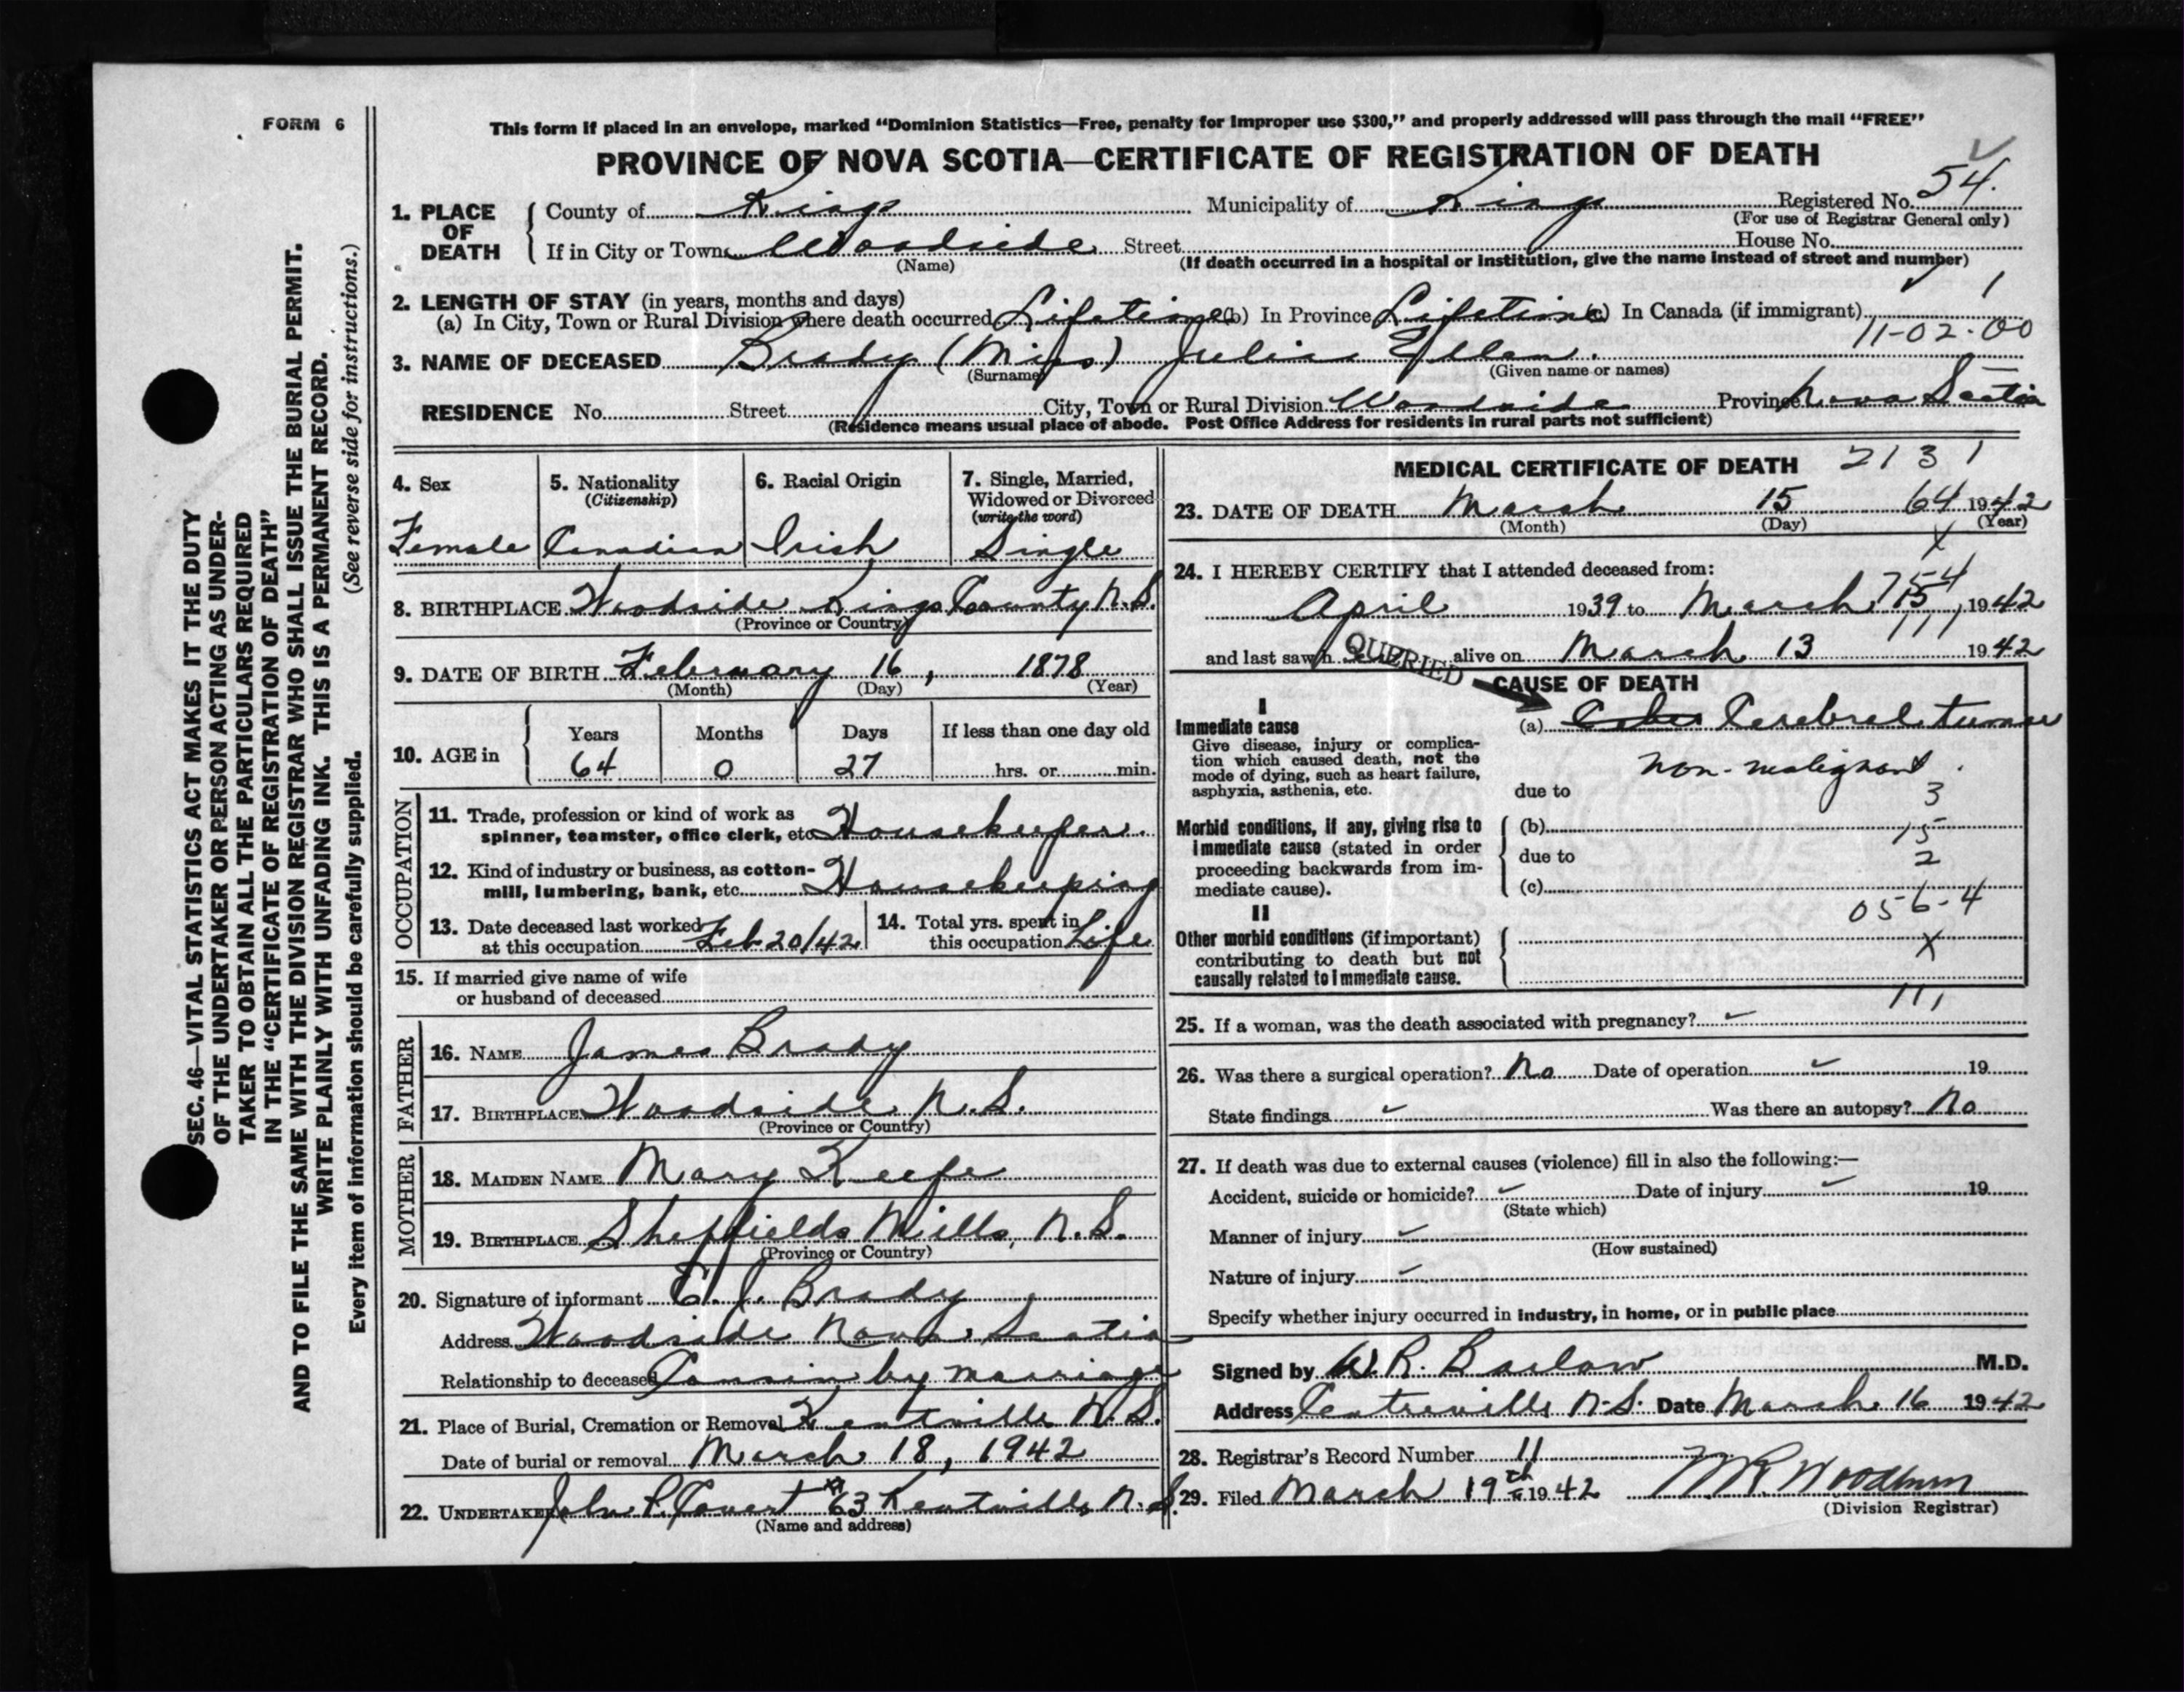 FORM 6
This form if placed in an envelope, marked “Dominion Statistics—Free, penalty for improper use $300,” and properly addressed will pass through the mail “FREE”
PROVINCE OF NOVA SCOTIA—CERTIFICATE OF REGISTRATION OF DEATH
1. PLACE OF DEATH
County of Kings Municipality of Kings Registered No. 54.
(For use of Registrar General only)
If in City or Town Woodside Street House No.
(Name) (If death occurred in a hospital or institution, give the name instead of street and number)
2. LENGTH OF STAY (in years, months and days) 1
(a) In City, Town or Rural Division where death occurred Lifetime (b) In Province Lifetime (c) In Canada (if immigrant)
11-02-00
3. NAME OF DECEASED Brady (Miss) Julia Ellen.
(Surname) (Given name or names)
RESIDENCE No. Street City, Town or Rural Division Woodside Province Nova Scotia
(Residence means usual place of abode. Post Office Address for residents in rural parts not sufficient)
4. Sex
Female
5. Nationality
(Citizenship)
Canadian
6. Racial Origin
Irish
7. Single, Married,
Widowed or Divorced
(write the word)
Single
8. BIRTHPLACE Woodside Kings County N.S.
(Province or Country)
9. DATE OF BIRTH February 16, 1878
(Month) (Day) (Year)
10. AGE in
Years Months Days If less than one day old
64 0 27 hrs. or min.
OCCUPATION
11. Trade, profession or kind of work as
spinner, teamster, office clerk, etc. Housekeeper.
12. Kind of industry or business, as cotton-
mill, lumbering, bank, etc. Housekeeping
13. Date deceased last worked
at this occupation Feb 20/42
14. Total yrs. spent in
this occupation Life
15. If married give name of wife
or husband of deceased
FATHER
16. NAME James Brady
17. BIRTHPLACE Woodside N.S.
(Province or Country)
MOTHER
18. MAIDEN NAME Mary Keefe
19. BIRTHPLACE Sheffields Mills, N.S.
(Province or Country)
20. Signature of informant E. J. Brady
Address Woodside Nova Scotia
Relationship to deceased Cousin by marriage
21. Place of Burial, Cremation or Removal Kentville N.S.
Date of burial or removal March 18, 1942
22. UNDERTAKER John P. Covert 63 Kentville, N.S.
(Name and address)
MEDICAL CERTIFICATE OF DEATH 2131
23. DATE OF DEATH March 15 64 1942
(Month) (Day) (Year)
X
24. I HEREBY CERTIFY that I attended deceased from:
754
April 1939 to March 15, 1942
111
and last saw h alive on March 13 1942
QUERIED
CAUSE OF DEATH
I
Immediate cause
Give disease, injury or complica-
tion which caused death, not the
mode of dying, such as heart failure,
asphyxia, asthenia, etc.
(a) Cerebral tumor
non-malignant.
due to
3
Morbid conditions, if any, giving rise to
immediate cause (stated in order
proceeding backwards from im-
mediate cause).
(b) 15
due to 2
(c)
056-4
II
Other morbid conditions (if important)
contributing to death but not
causally related to immediate cause.
X
111
25. If a woman, was the death associated with pregnancy?
26. Was there a surgical operation? No Date of operation 19
State findings Was there an autopsy? No
27. If death was due to external causes (violence) fill in also the following:—
Accident, suicide or homicide? Date of injury 19
(State which)
Manner of injury
(How sustained)
Nature of injury
Specify whether injury occurred in industry, in home, or in public place
Signed by W. R. Barlow M.D.
Address Centreville N.S. Date March 16 1942
28. Registrar's Record Number 11
29. Filed March 19th 1942
(Division Registrar)
SEC. 46—VITAL STATISTICS ACT MAKES IT THE DUTY
OF THE UNDERTAKER OR PERSON ACTING AS UNDER-
TAKER TO OBTAIN ALL THE PARTICULARS REQUIRED
IN THE “CERTIFICATE OF REGISTRATION OF DEATH”
AND TO FILE THE SAME WITH THE DIVISION REGISTRAR WHO SHALL ISSUE THE BURIAL PERMIT.
WRITE PLAINLY WITH UNFADING INK. THIS IS A PERMANENT RECORD.
Every item of information should be carefully supplied. (See reverse side for instructions.)